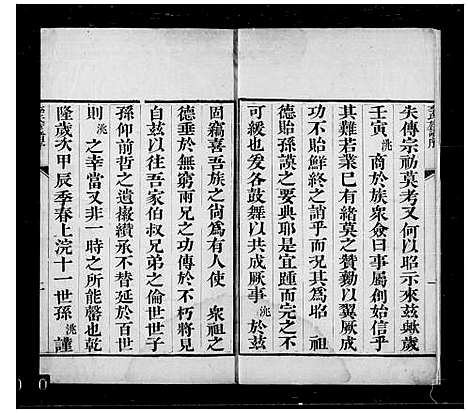 失傳宗祊莫考又何以昭示來茲歟歲
壬寅洮商於族衆僉曰事屬創始信乎
其難若業已有緒莫之贊勷以翼厥成
功不貽鮮終之誚乎而況其為昭 祖
德貽孫謨之要典耶是宜踵而完之不
可緩也爰各鼓舞以共成厥事洮於茲
固竊喜吾族之尚為有人使 衆祖之
德垂於無窮兩兄之功傳於不朽將見
自茲以往吾家伯叔兄弟之倫世世子
孫仰前哲之遺徽纘承不替延於百世
則洮之幸當又非一時之所能罄也乾
隆歲次甲辰季春上浣十一世孫洮謹